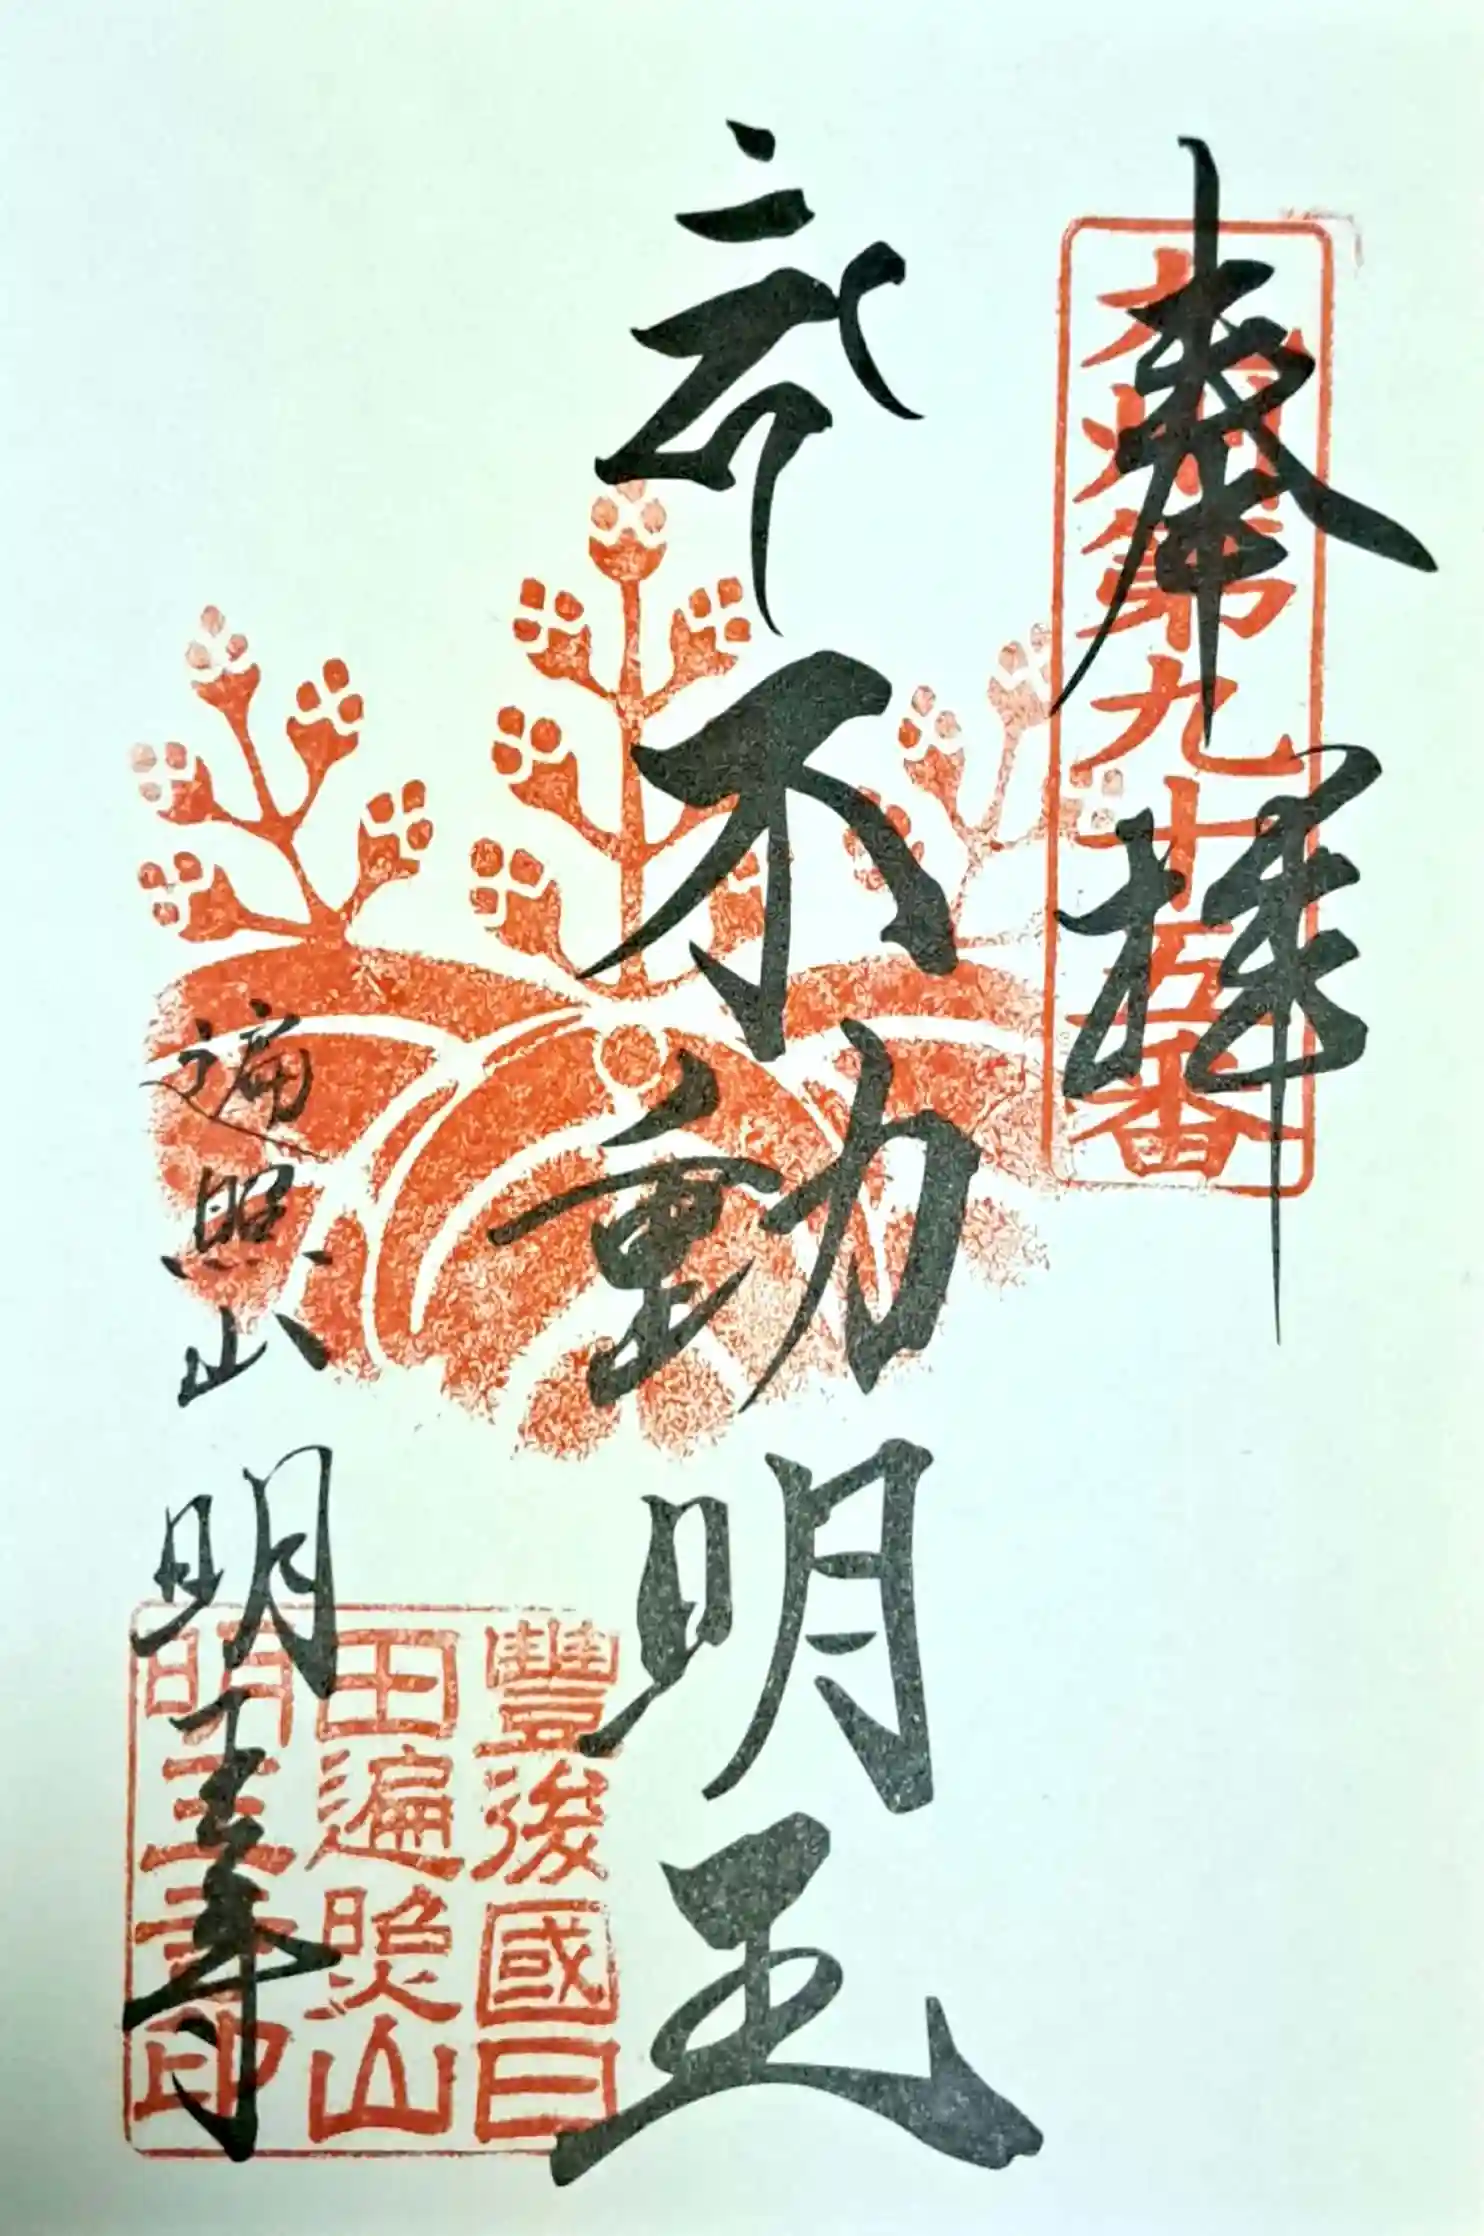 奉拝
九州第九十五番
不動明王
遍照山
明王寺
豐後國日
田遍照山
明王寺印